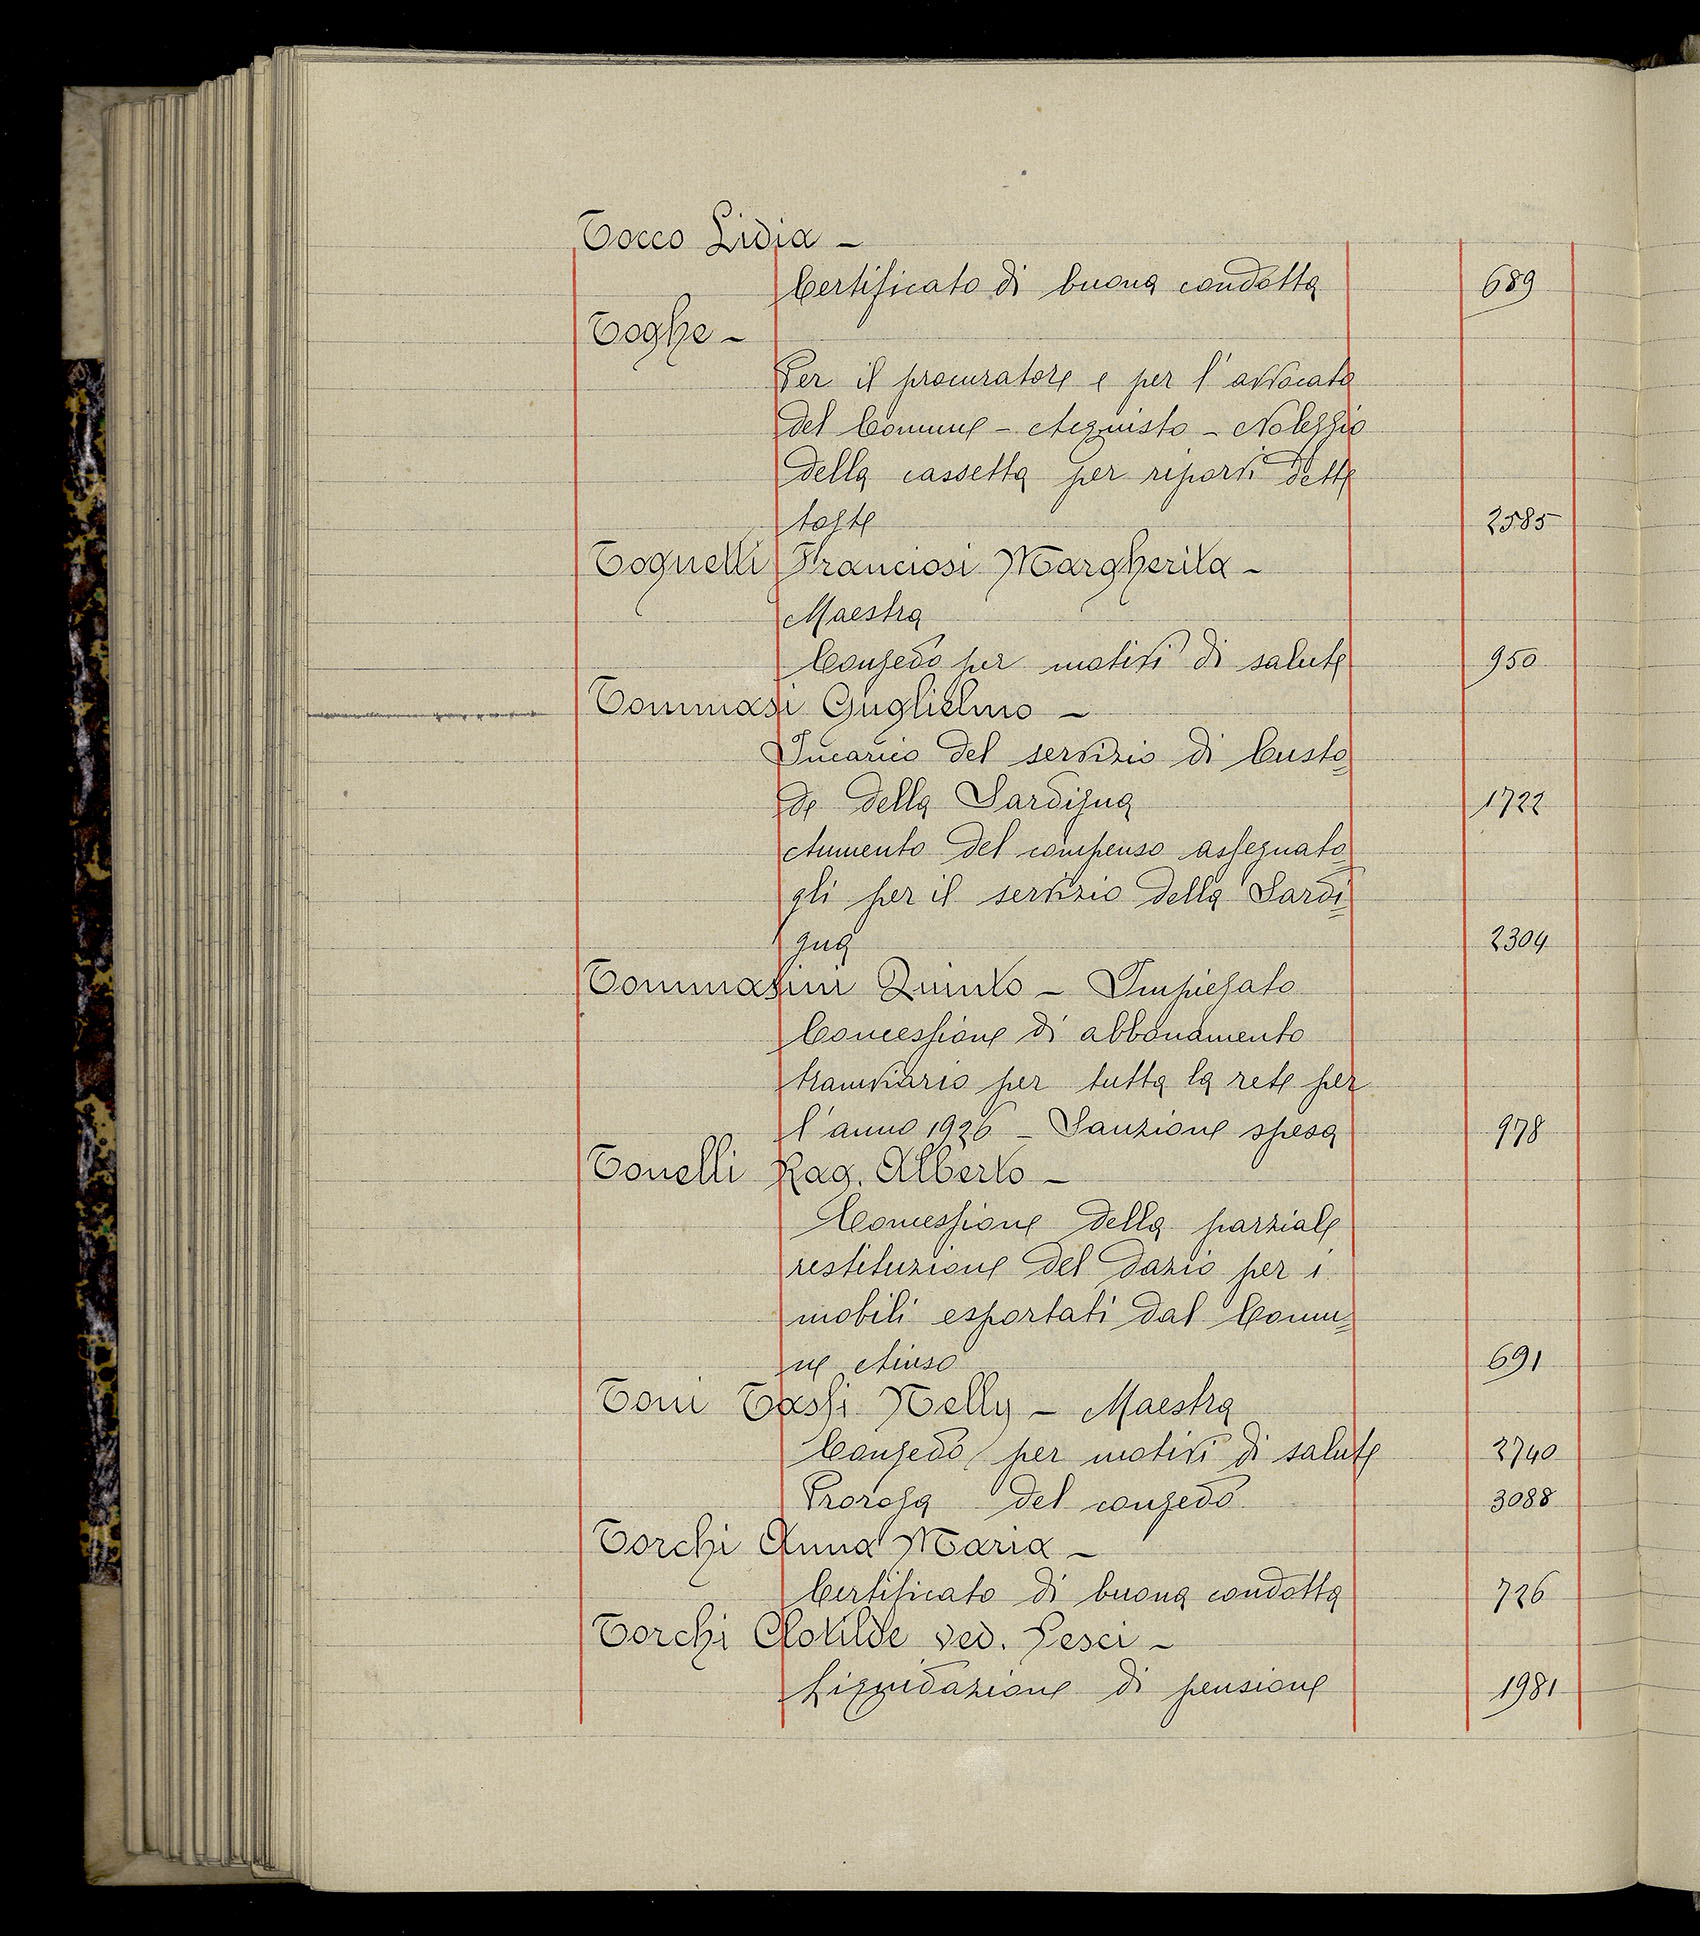 Tocco Lidia –
Certificato di buona condotta 689
Toghe –
Per il procuratore e per l'avvocato
del Comune – Acquisto – Noleggio
della cassetta per riporvi dette
toghe 2585
Tognetti Franciosi Margherita –
Maestra
Congedo per motivi di salute 950
Tommasi Guglielmo –
Incarico del servizio di Custo=
de della Sardigna 1722
Aumento del compenso assegnato=
gli per il servizio della Sardi=
gna 2304
Tommasini Quinto – Impiegato
Concessione di abbonamento
tramviario per tutta la rete per
l'anno 1926 – Sanzione spesa 978
Tonelli Rag. Alberto –
Concessione della parziale
restituzione del dazio per i
mobili esportati dal Comu=
ne chiuso 691
Toni Tassi Nelly – Maestra
Congedo per motivi di salute 2740
Proroga del congedo 3088
Torchi Anna Maria –
Certificato di buona condotta 726
Torchi Clotilde ved. Pesci –
Liquidazione di pensione 1981